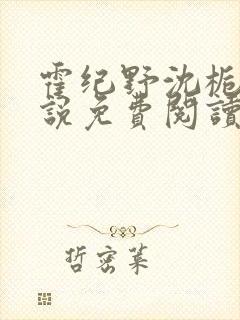 霍纪野沈栀
說免費閱讀
哲密菜